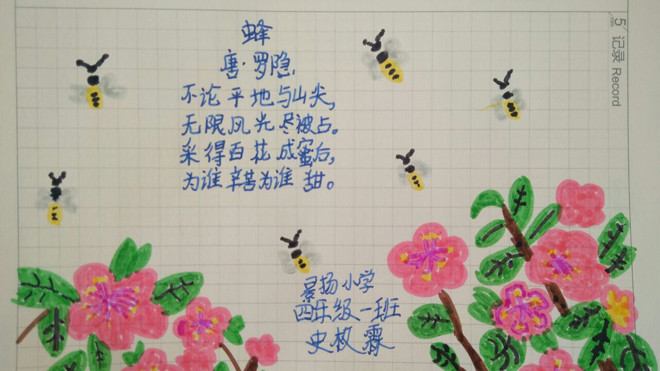 蜂
唐·罗隐
不论平地与山尖,
无限风光尽被占。
采得百花成蜜后,
为谁辛苦为谁甜。
景扬小学
四年级一班
史枚霖
5 记录 Record